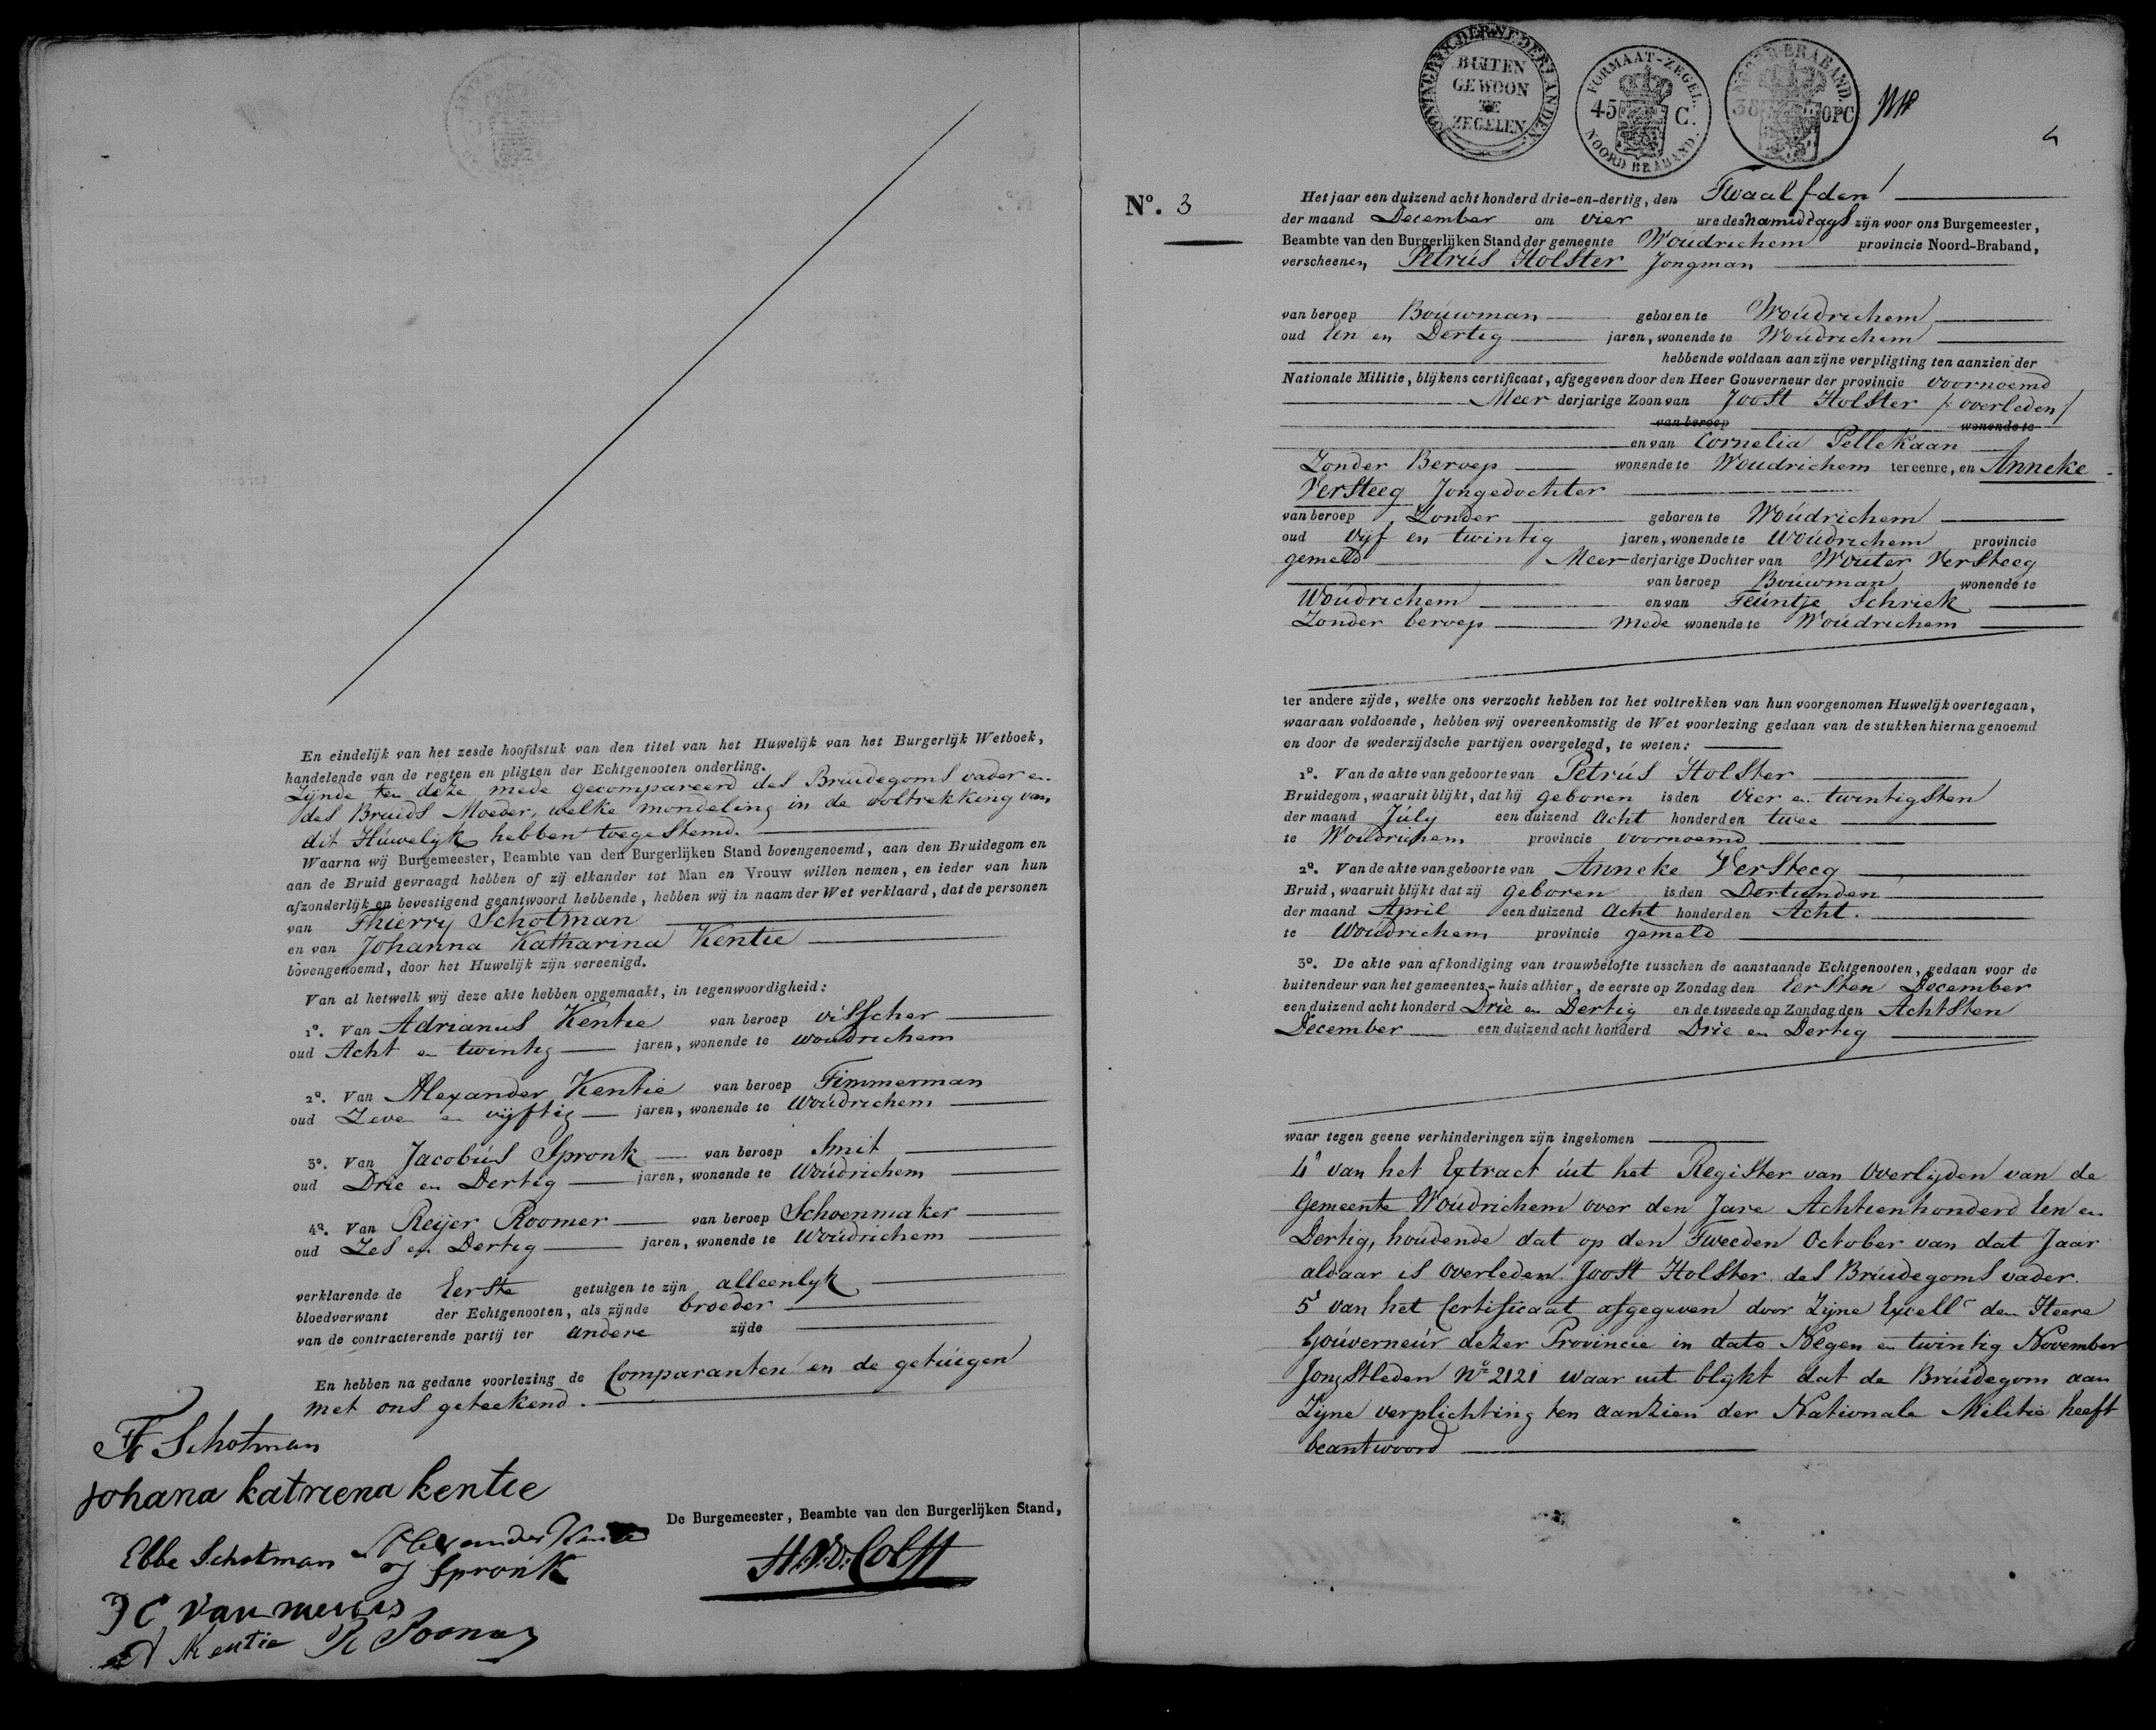 En eindelijk van het zesde hoofdstuk van den titel van het Huwelijk van het Burgerlijk Wetboek,
handelende van de regten en pligten der Echtgenooten onderling.
Zijnde ten deze mede gecompareerd des Bruidegoms vader en
des Bruids Moeder, welke mondeling in de voltrekking van
dit Huwelijk hebben toegestemd.
Waarna wij Burgemeester, Beambte van den Burgerlijken Stand bovengenoemd, aan den Bruidegom en
aan de Bruid gevraagd hebben of zij elkander tot Man en Vrouw willen nemen, en ieder van hun
afzonderlijk en bevestigend geantwoord hebbende, hebben wij in naam der Wet verklaard, dat de personen
van Thierry Schotman
en van Johanna Katharina Kentie
bovengenoemd, door het Huwelijk zijn vereenigd.
Van al hetwelk wij deze akte hebben opgemaakt, in tegenwoordigheid:
1º. Van Adrianus Kentie van beroep visscher
oud Acht en twintig jaren, wonende te woudrichem
2º. Van Alexander Kentie van beroep Timmerman
oud Zeven en vijftig jaren, wonende te Woudrichem
3º. Van Jacobus Spronk van beroep Smit
oud Drie en Dertig jaren, wonende te Woudrichem
4º. Van Reijer Roomer van beroep Schoenmaker
oud Zes en Dertig jaren, wonende te Woudrichem
verklarende de Eerste getuigen te zijn alleenlyk
bloedverwant der Echtgenooten, als zijnde broeder
van de contracterende partij ter andere zijde
En hebben na gedane voorlezing de Comparanten en de getuigen
met ons geteekend.
Th Schotman
Johana katriena kentie
De Burgemeester, Beambte van den Burgerlijken Stand,
Ebbe Schotman Alexander Kentie
J Spronk
J C van
A Kentie R
KONINGRYK DER NEDERLANDEN
BUITEN
GEWOON
TE
ZEGELEN
FORMAAT-ZEGEL.
45 C.
NOORD BRABAND.
NOORD-BRABAND.
38 OPC
Nº. 3
Het jaar een duizend acht honderd drie-en-dertig, den Twaalfden
der maand December om vier ure des namiddags zijn voor ons Burgemeester,
Beambte van den Burgerlijken Stand der gemeente Woudrichem provincie Noord-Braband,
verscheenen, Petrus Holster Jongman
van beroep Bouwman geboren te Woudrichem
oud Een en Dertig jaren, wonende te Woudrichem
hebbende voldaan aan zijne verpligting ten aanzien der
Nationale Militie, blijkens certificaat, afgegeven door den Heer Gouverneur der provincie voornoemd
Meer derjarige Zoon van Joost Holster /: overleden /
van beroep wonende te
en van Cornelia Pellekaan
Zonder Beroep wonende te Woudrichem ter eenre, en Anneke
Versteeg Jongedochter
van beroep Zonder geboren te Woudrichem
oud Vijf en twintig jaren, wonende te Woudrichem provincie
gemeld Meer derjarige Dochter van Wouter Versteeg
van beroep Bouwman wonende te
Woudrichem en van Teuntje Schriek
Zonder beroep Mede wonende te Woudrichem
ter andere zijde, welke ons verzocht hebben tot het voltrekken van hun voorgenomen Huwelijk overtegaan,
waaraan voldoende, hebben wij overeenkomstig de Wet voorlezing gedaan van de stukken hierna genoemd
en door de wederzijdsche partijen overgelegd, te weten:
1º. Van de akte van geboorte van Petrus Holster
Bruidegom, waaruit blijkt, dat hij geboren is den Vier en twintigsten
der maand July een duizend Acht honderd en twee
te Woudrichem provincie voornoemd
2º. Van de akte van geboorte van Anneke Versteeg
Bruid, waaruit blijkt dat zij geboren is den Dertienden
der maand April een duizend Acht honderd en Acht.
te Woudrichem provincie gemeld
3º. De akte van afkondiging van trouwbelofte tusschen de aanstaande Echtgenooten, gedaan voor de
buitendeur van het gemeentes-huis alhier, de eerste op Zondag den Eersten December
een duizend acht honderd Drie en Dertig en de tweede op Zondag den Achtsten
December een duizend acht honderd Drie en Dertig
waar tegen geene verhinderingen zijn ingekomen
4º van het Extract uit het Register van Overlijden van de
Gemeente Woudrichem over den Jare Achtienhonderd Een en
Dertig, houdende dat op den Tweeden October van dat Jaar
aldaar is overleden Joost Holster des Bruidegoms vader.
5º van het Certificaat afgegeven door Zijne Excellr den Heere
Gouverneur dezer Provincie in dato Negen en twintig November
Jongstleden No 2121 waar uit blijkt dat de Bruidegom aan
Zijne verplichting ten aanzien der Nationale Militie heeft
beantwoord